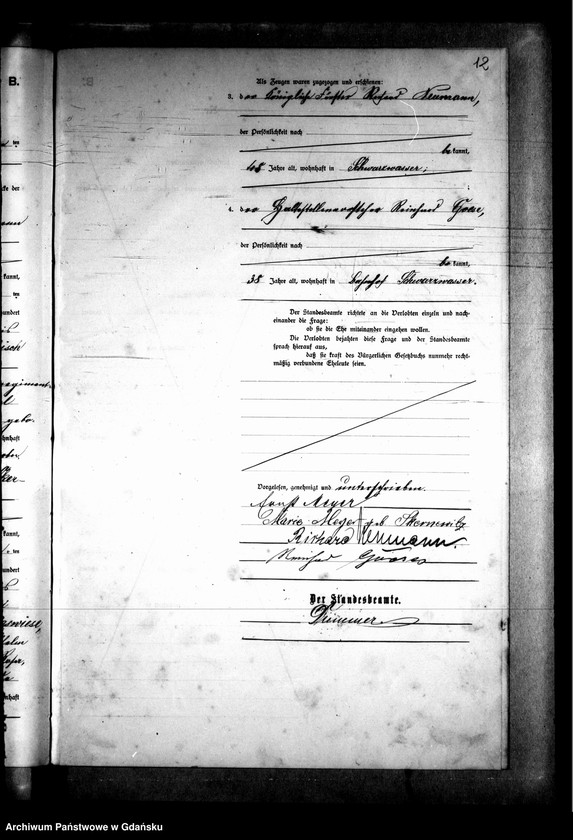 B.
12
Als Zeugen waren zugezogen und erschienen:
3. der Königliche Förster Richard Neumann,
der Persönlichkeit nach
be kannt,
48 Jahre alt, wohnhaft in Schwarzwasser;
4. der Haltestellenvorsteher Reinhard
der Persönlichkeit nach
be kannt,
38 Jahre alt, wohnhaft in Bahnhof Schwarzwasser.
Der Standesbeamte richtete an die Verlobten einzeln und nach-
einander die Frage:
ob sie die Ehe miteinander eingehen wollen.
Die Verlobten bejahten diese Frage und der Standesbeamte
sprach hierauf aus,
daß sie kraft des Bürgerlichen Gesetzbuchs nunmehr recht-
mäßig verbundene Eheleute seien.
Vorgelesen, genehmigt und unterschrieben.
Ernst Meyer
Marie Meyer geb.
Richard Neumann.
Reinhard
Der Standesbeamte.
Archiwum Państwowe w Gdańsku